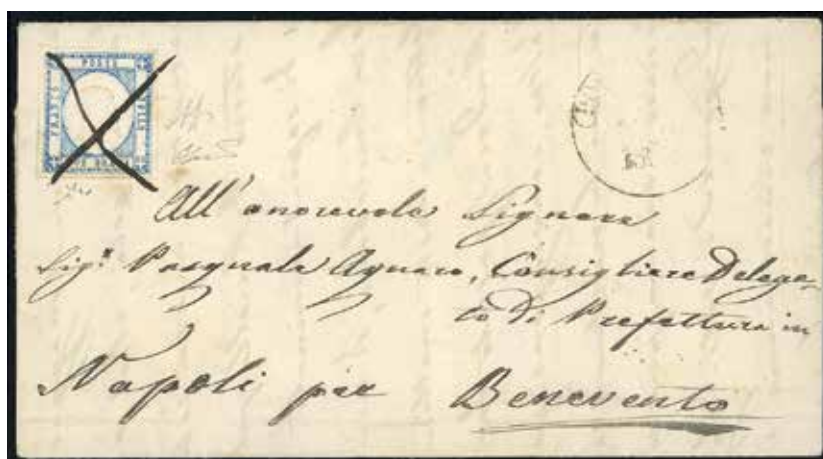 FRANCO
POSTE
BOLLO
All' onorevole Signore
Sig.r Pasquale Agnaro, Consigliere Delega-
to di Prefettura in
Napoli per Benevento